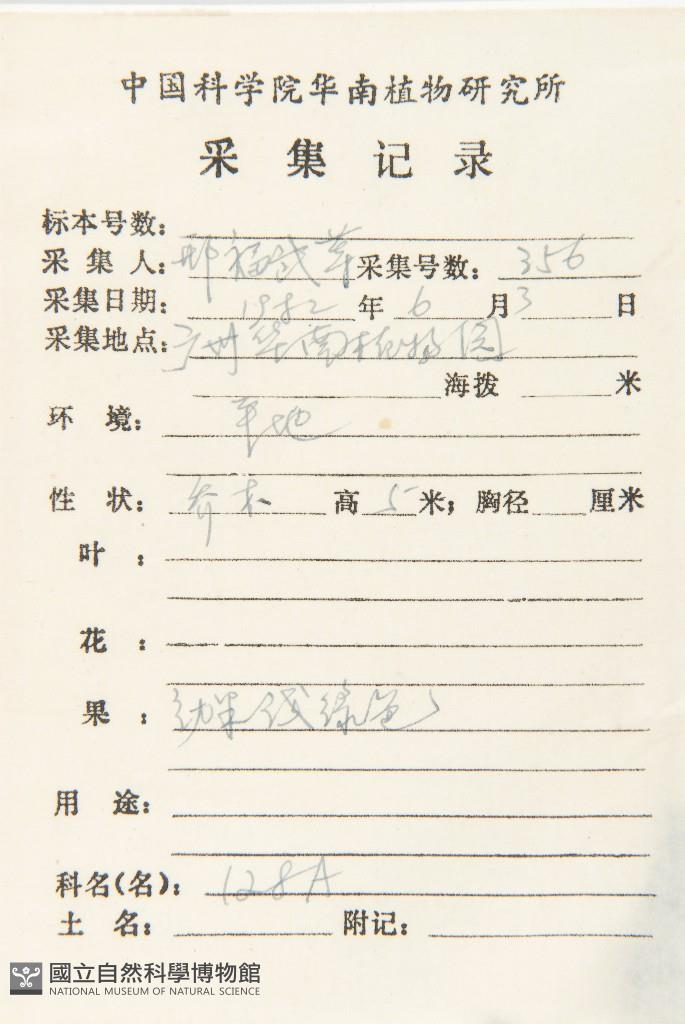 中国科学院华南植物研究所
采集记录
标本号数:
采集人: 邢福武等 采集号数: 356
采集日期: 1982年6月3日
采集地点: 广州华南植物园
海拨 米
环境: 平地
性状: 乔木 高5米; 胸径 厘米
叶:
花:
果: 幼果浅绿色
用途:
科名(名): 128A
土名: 附记:
國立自然科學博物館
NATIONAL MUSEUM OF NATURAL SCIENCE